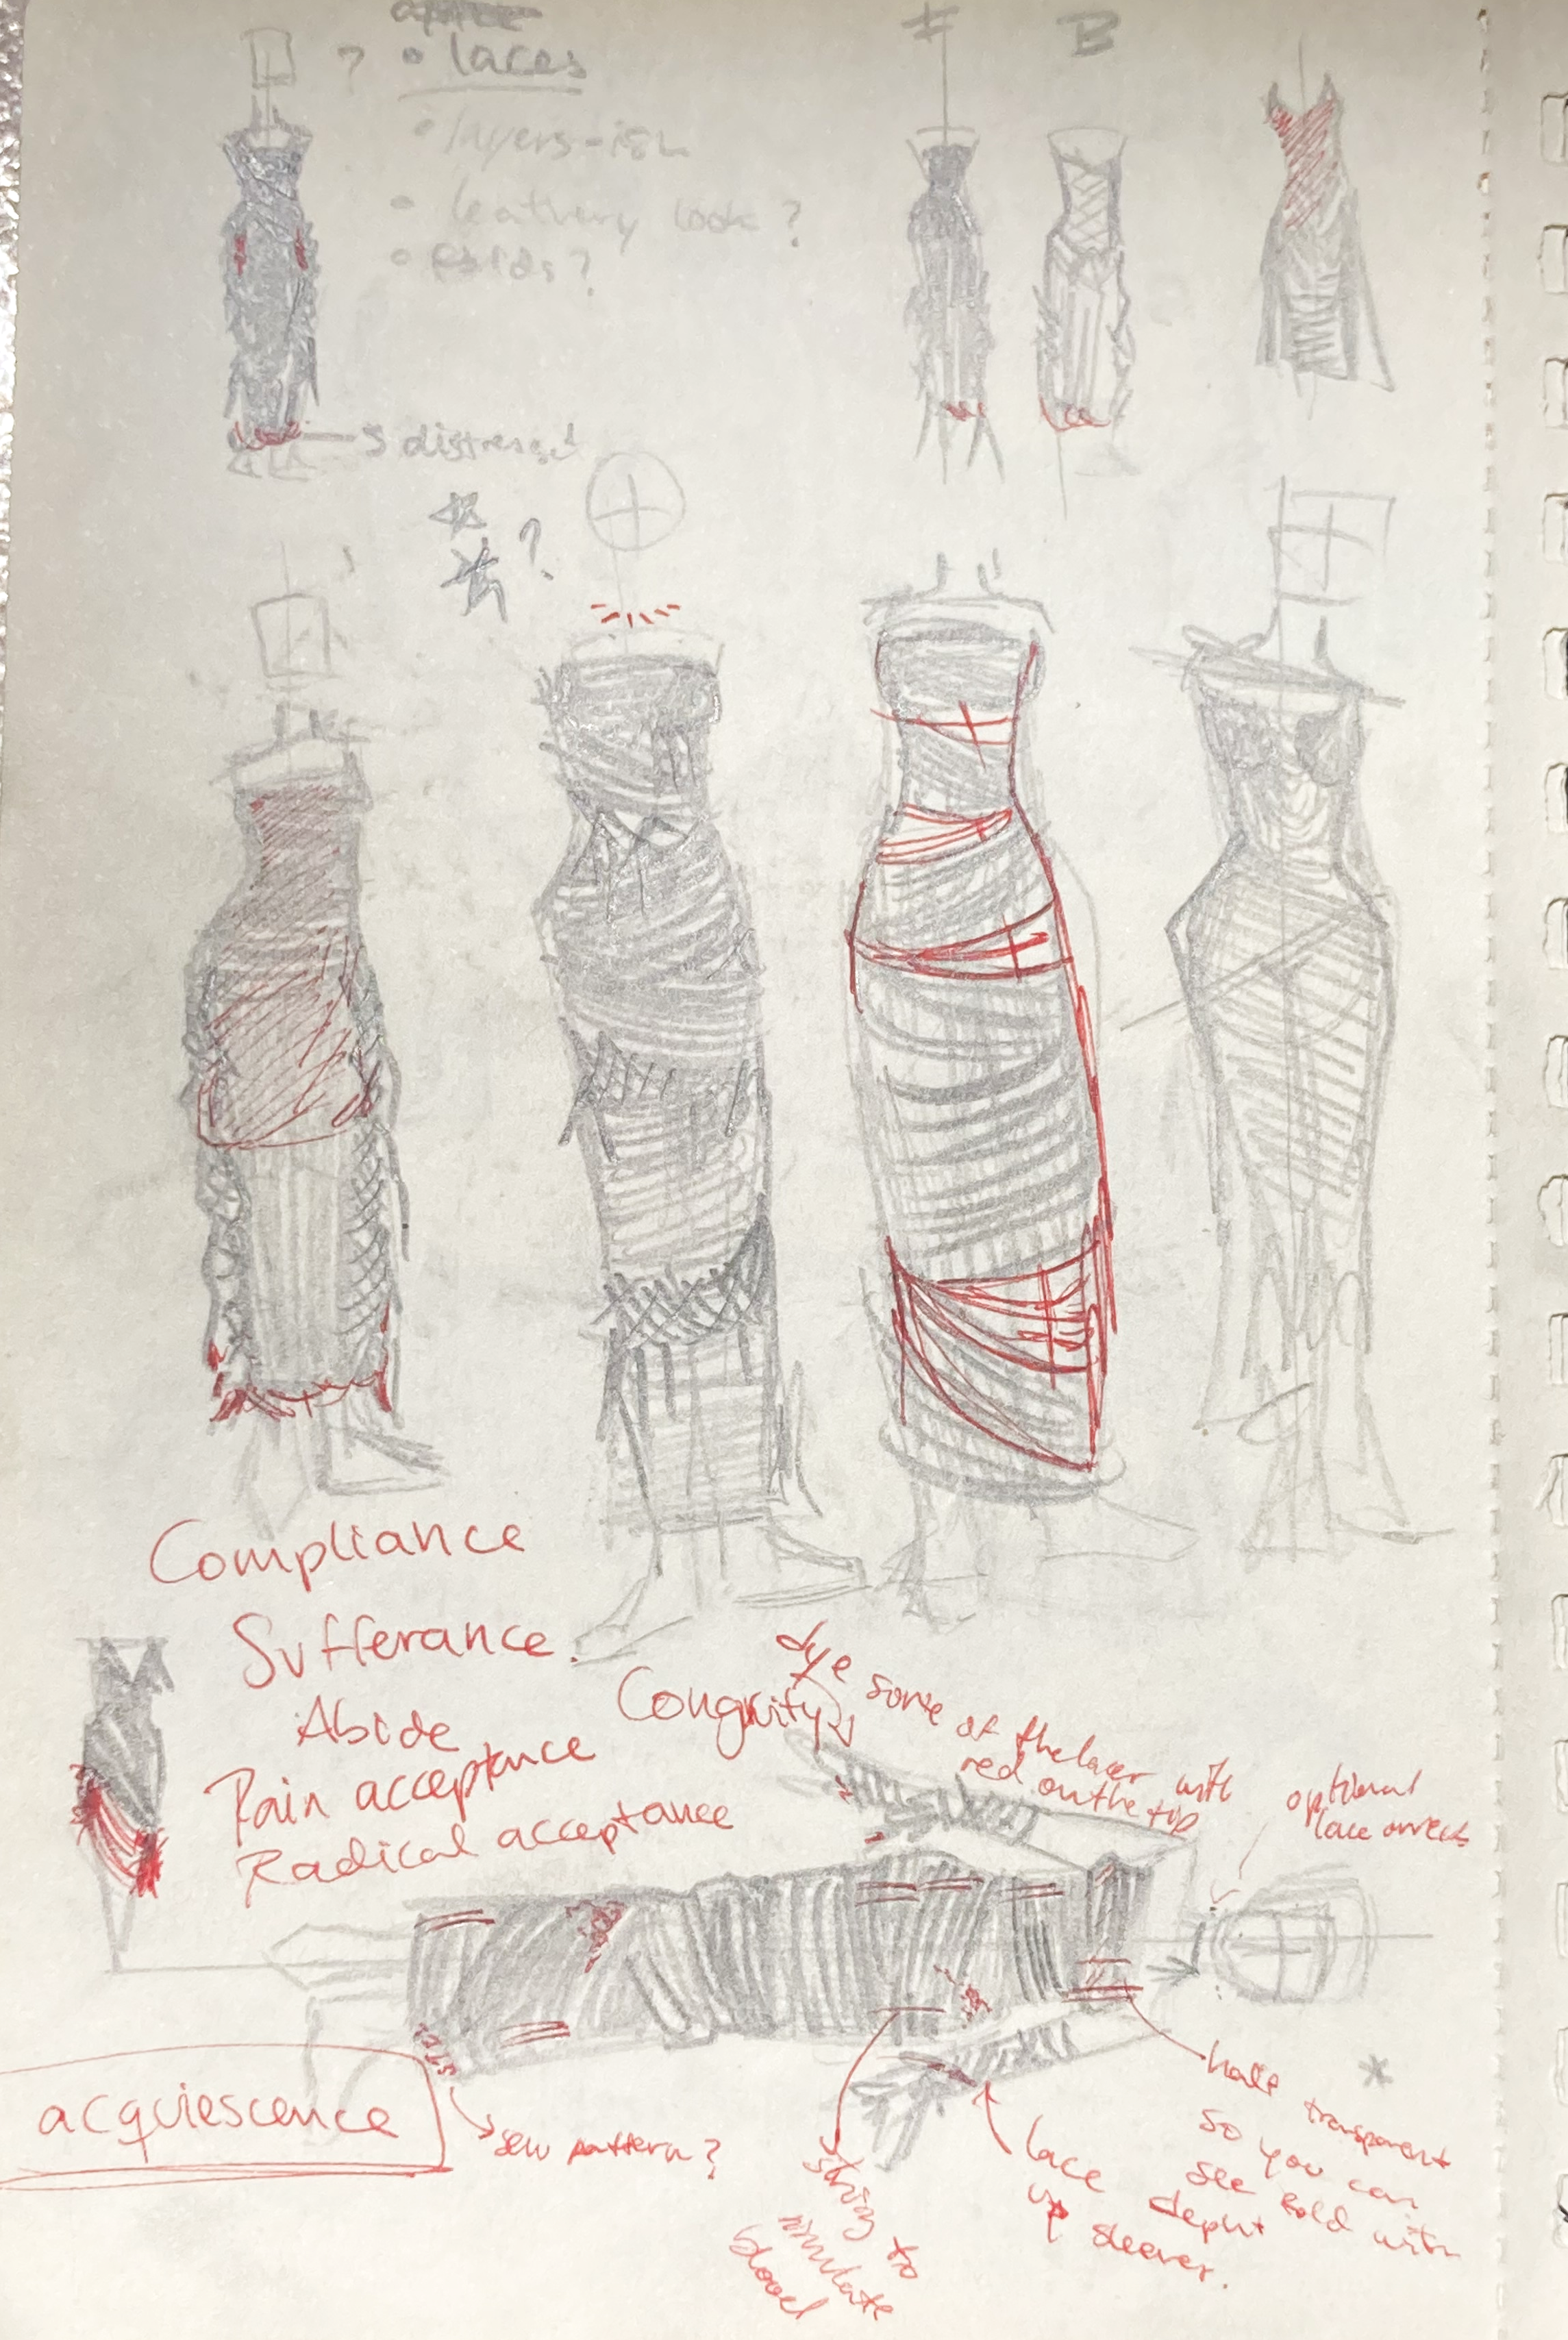 ? • laces
F B
• layers-ish
• leathery look ?
• Folds?
distressed
?
Compliance
Sufferance.
Abide
Pain acceptance
Radical acceptance
Congruity
dye some of the lacer with
red on the top
optional
lace
acquiescence
sew pattern?
string to
simulate
blood
lace
up sleever.
half transparent
so you can
see fold with
depht